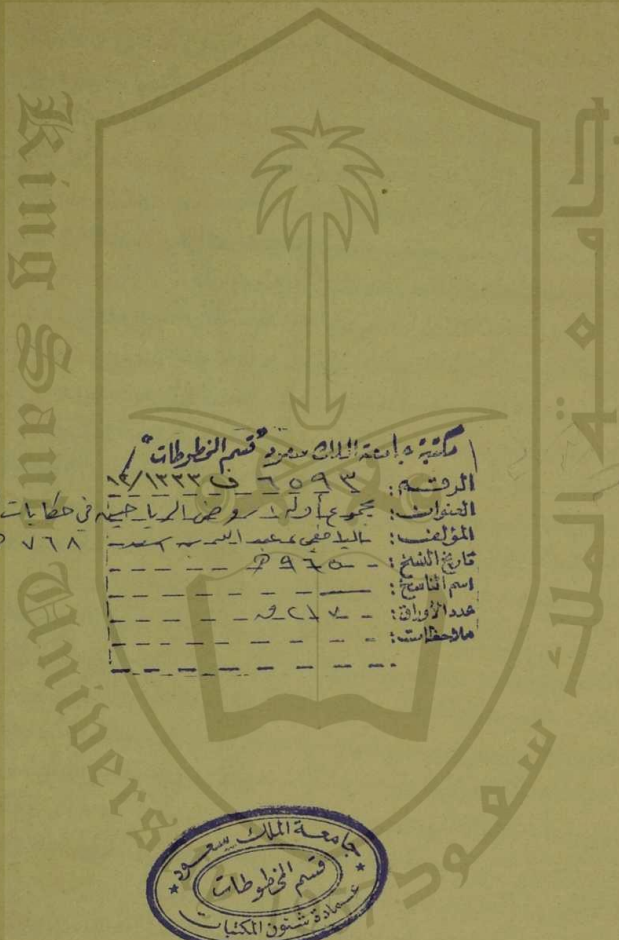 King Saud Univers
جامعة الملك سعود
مكتبة جامعة الملك سعود "قسم المخطوطات"
الرقم: ٦٥٩٣ ف ١٢٣٣/
العنوان: مجموع أوله روض الرياحين في حكايات
المؤلف: اليافعي، عبد الله بن أسعد ٧٦٨
تاريخ النسخ: ٩٦٥ هـ
اسم الناسخ:
عدد الأوراق: ٢١٧ ق
ملاحظات:
جامعة الملك سعود
قسم المخطوطات
عمادة شئون المكتبات